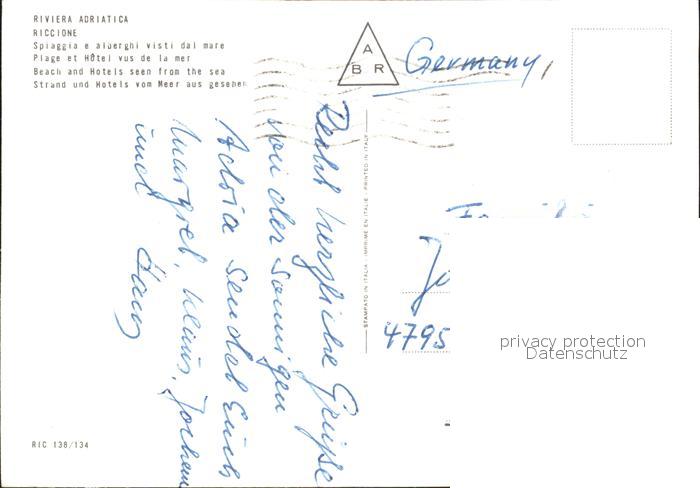 RIVIERA ADRIATICA
RICCIONE
Spiaggia e alberghi visti dal mare
Plage et Hôtel vus de la mer
Beach and Hotels seen from the sea
Strand und Hotels vom Meer aus gesehen
A
B R
Germany,
Recht herzliche Grüße
von der Sonnigen
Adria sendet Euch
Margret, Klaus, Jochen
und
STAMPATO IN ITALIA - IMPRIMÉ EN ITALIE - PRINTED IN ITALY
4795
privacy protection
Datenschutz
RIC 138/134